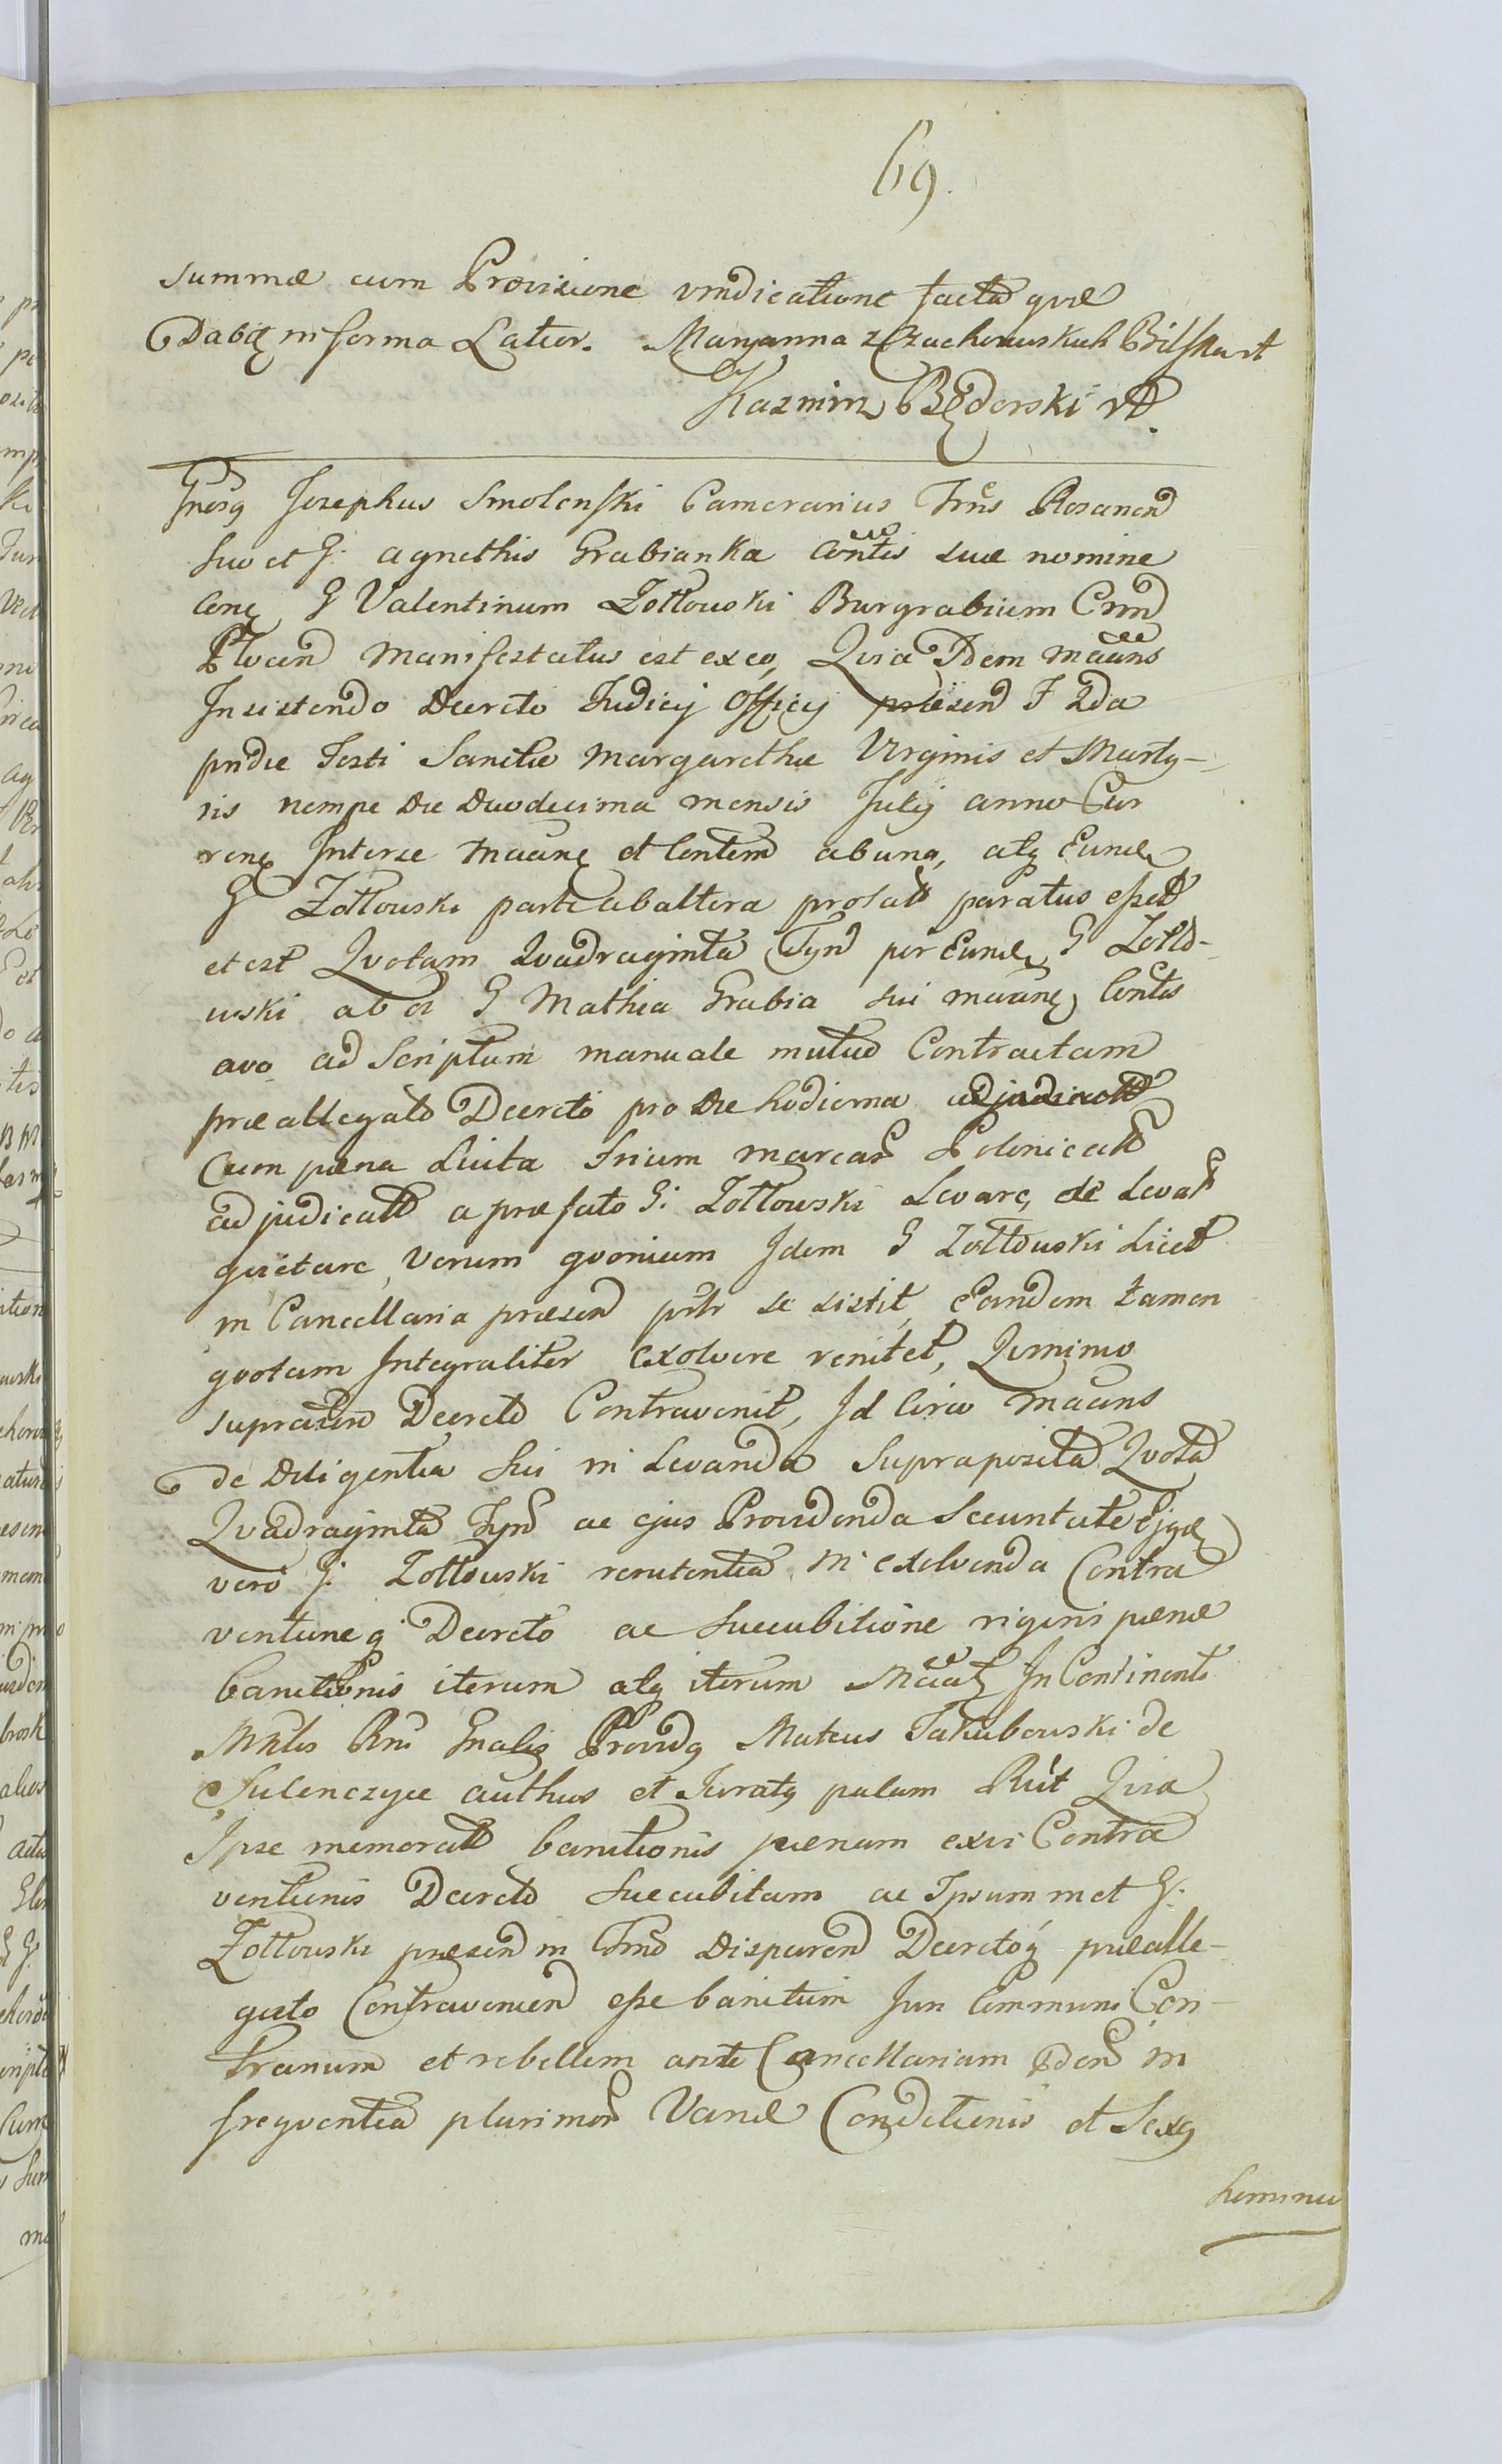 69.
summæ cum Provisione vindicatione facta quæ
Dabit in forma Latior. Maryanna z Czachowskich Bilska
Kazmirz Będorski
Gnosq Josephus Smolenski Camerarius Trris Rosanen
suo et G. Agnethis Grabianka Contis suæ nomine
Cong G Valentinum Zołtowski Burgrabium
Plocen Manifestatus est ex eo, Quia Idem maans
Insistendo Decreto Judicij Officij præsen F 2da
pridie Festi Sanctæ Margarethæ Virginis et Marty-
ris nempe Die Duodecima mensis Julij anno Cur
ren Inter se et ab una, atq Eund
G Zołtowski parte ab altera prolat paratus esset
et est Quotam Quadraginta Tyn per Eund G Zołto-
wski ab G Mathia Grabia sui Contis
avo ad Scriptum manuale mutuo Contractam
præallegato Decreto pro Die hodierna adjudicat
cum pæna Luita trium marcar Polonicat
adjudicat a præfato G. Zołtowski Levare, de Levat
quietare, Verum quonium Idem G Zołtowski Licet
in Cancellaria præsen se sistit, Eandem tamen
quotam Integraliter Exolvere renitet, Quinimo
Decreto Contravenit, Id Circo maans
de Diligentia sui in Levanda Supraposita Quota
Quadraginta Tyn ac ejus Providenda Securitate
vero G. Zołtowski renitentia in exolvenda Contra
ventione q Decreto ac Succubitione rigoris pænæ
banitionis iterum atq iterum In Continenti
Mnlis Gnalis Providq Mateus Jakubowski de
Sulenczyce authus et Juratq palam Rtt Quia
Ipse memorat banitionis pænam ex vi Contra
ventionis Decreto Succubitam ac Ipsummet G.
Zołtowski præsen in Disparen Decretoq præalle-
gato Contravenien esse banitum Jun Communi Con-
trarium et rebellem ante Cancellariam in
frequentia plurimor Variæ Conditionis et Sexq
hominu